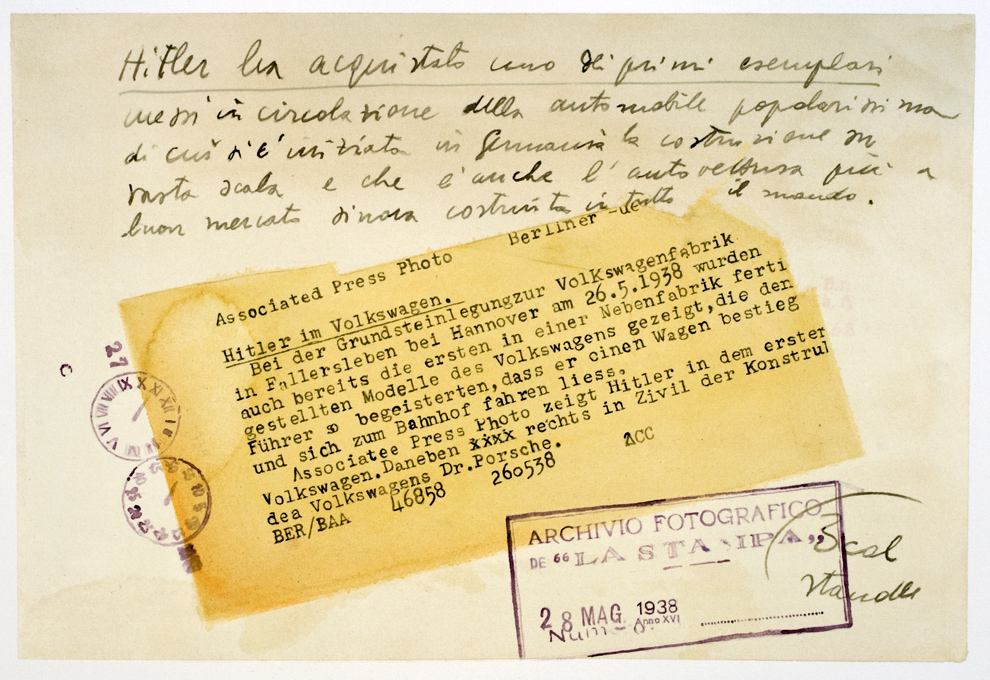 Hitler ha acquistato uno dei primi esemplari
messi in circolazione della automobile popolarissima
di cui si è iniziata in Germania la costruzione su
vasta scala e che è anche l'autovettura più a
buon mercato sinora costruita in tutto il mondo.
Associated Press Photo Berliner -ue
Hitler im Volkswagen.
Bei der Grundsteinlegungzur Volkswagenfabrik
in Fallersleben bei Hannover am 26.5.1938 wurden
auch bereits die ersten in einer Nebenfabrik ferti
gestellten Modelle des Volkswagens gezeigt,die den
Führer so begeisterten,dass er einen Wagen bestieg
und sich zum Bahnhof fahren liess.
Associatee Press Photo zeigt Hitler in dem ersten
Volkswagen.Daneben xxxx rechts in Zivil der Konstruk
dea Volkswagens Dr.Porsche.
BER/BAA 46858 260538 ACC
27
ARCHIVIO FOTOGRAFICO
DE "LA STAMPA"
28 MAG. 1938
Anno XVI